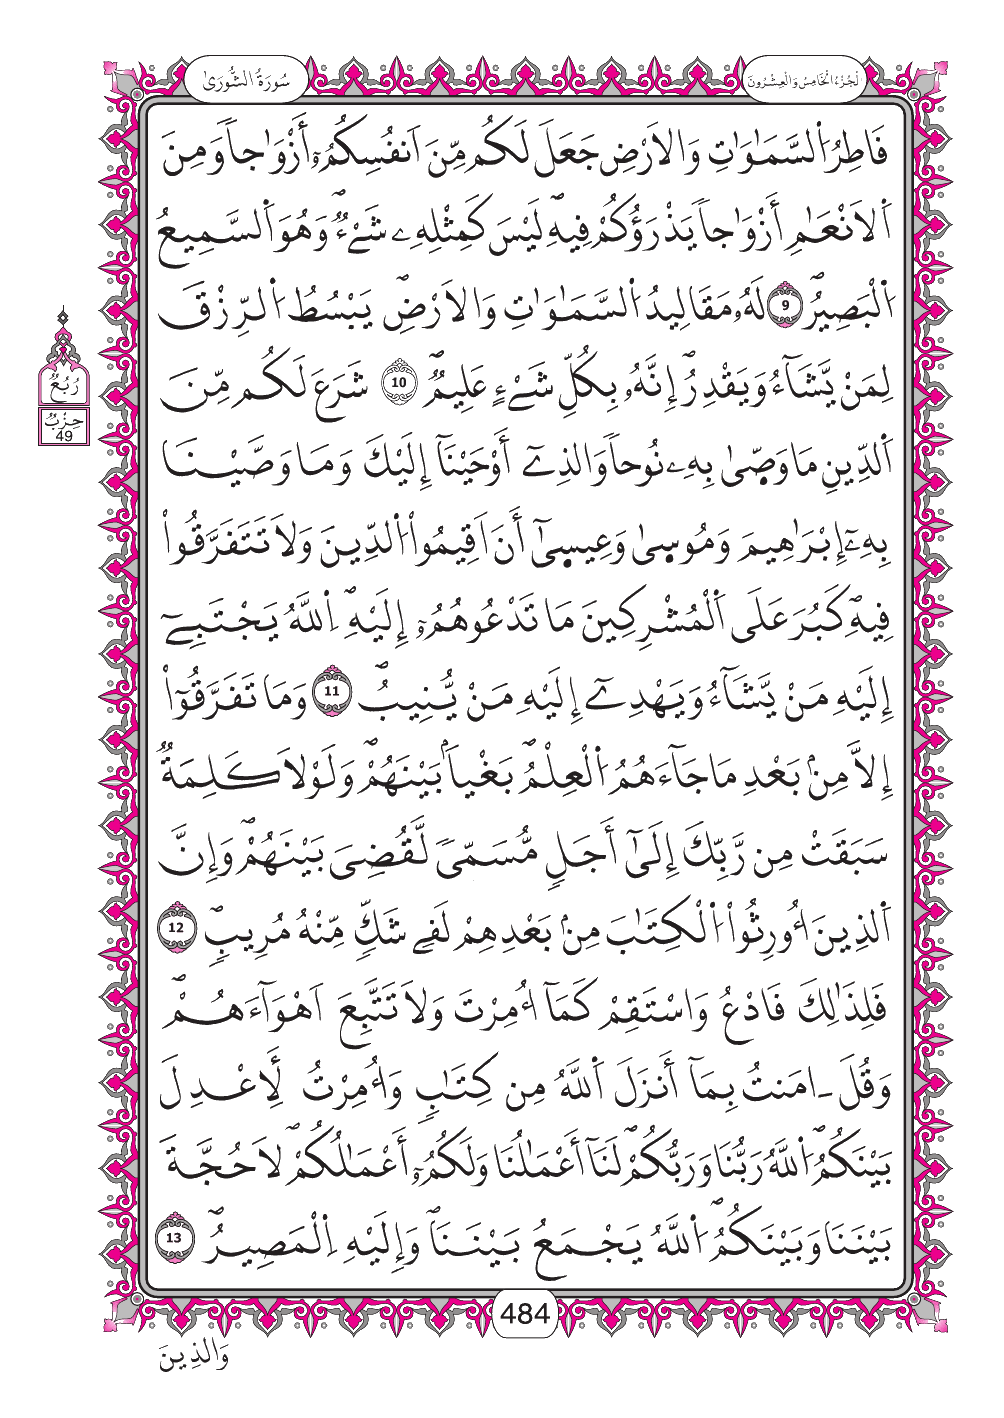 سُورَةُ الشُّورَىٰ
الْجُزْءُ الْخَامِسُ وَالْعِشْرُونَ
فَاطِرُ اُ۬لسَّمَٰوَٰتِ وَالَارْضِ جَعَلَ لَكُم مِّنَ اَنفُسِكُمُۥٓ أَزْوَٰجاٗ وَمِنَ
اَ۬لَانْعَٰمِ أَزْوَٰجاٗ يَذْرَؤُكُمْ فِيهِۖ لَيْسَ كَمِثْلِهِۦ شَےْءٞۖ وَهُوَ اَ۬لسَّمِيعُ
اُ۬لْبَصِيرُۖ 9 لَهُۥ مَقَالِيدُ اُ۬لسَّمَٰوَٰتِ وَالَارْضِۖ يَبْسُطُ اُ۬لرِّزْقَ
لِمَنْ يَّشَآءُ وَيَقْدِرُۖ إِنَّهُۥ بِكُلِّ شَےْءٍ عَلِيمٞۖ 10 شَرَعَ لَكُم مِّنَ
رُبُعُ
حِزْبٌ
49
اَ۬لدِّينِ مَا وَصّ۪ىٰ بِهِۦ نُوحاٗ وَالذِےٓ أَوْحَيْنَآ إِلَيْكَ وَمَا وَصَّيْنَا
بِهِۦٓ إِبْرَٰهِيمَ وَمُوس۪ىٰ وَعِيس۪ىٰٓ أَنَ اَقِيمُواْ اُ۬لدِّينَ وَلَا تَتَفَرَّقُواْ
فِيهِۖ كَبُرَ عَلَى اَ۬لْمُشْرِكِينَ مَا تَدْعُوهُمُۥٓ إِلَيْهِۖ اِ۬للَّهُ يَجْتَبِےٓ
إِلَيْهِ مَنْ يَّشَآءُ وَيَهْدِےٓ إِلَيْهِ مَنْ يُّنِيبُۖ 11 وَمَا تَفَرَّقُوٓاْ
إِلَّا مِنۢ بَعْدِ مَا جَآءَهُمُ اُ۬لْعِلْمُۖ بَغْياَۢ بَيْنَهُمْۖ وَلَوْلَا كَلِمَةٞ
سَبَقَتْ مِن رَّبِّكَ إِلَىٰٓ أَجَلٖ مُّسَمّىٗ لَّقُضِيَ بَيْنَهُمْۖ وَإِنَّ
اَ۬لذِينَ أُورِثُواْ اُ۬لْكِتَٰبَ مِنۢ بَعْدِهِمْ لَفِے شَكّٖ مِّنْهُ مُرِيبٖۖ 12
فَلِذَٰلِكَ فَادْعُ وَاسْتَقِمْ كَمَآ أُمِرْتَ وَلَا تَتَّبِعَ اَهْوَآءَهُمْۖ
وَقُلَ اٰمَنتُ بِمَآ أَنزَلَ اَ۬للَّهُ مِن كِتَٰبٖ وَأُمِرْتُ لِأَعْدِلَ
بَيْنَكُمُۖ اُ۬للَّهُ رَبُّنَا وَرَبُّكُمْۖ لَنَآ أَعْمَٰلُنَا وَلَكُمُۥٓ أَعْمَٰلُكُمْۖ لَا حُجَّةَ
بَيْنَنَا وَبَيْنَكُمُۖ اُ۬للَّهُ يَجْمَعُ بَيْنَنَاۖ وَإِلَيْهِ اِ۬لْمَصِيرُۖ 13
484
وَالذِينَ